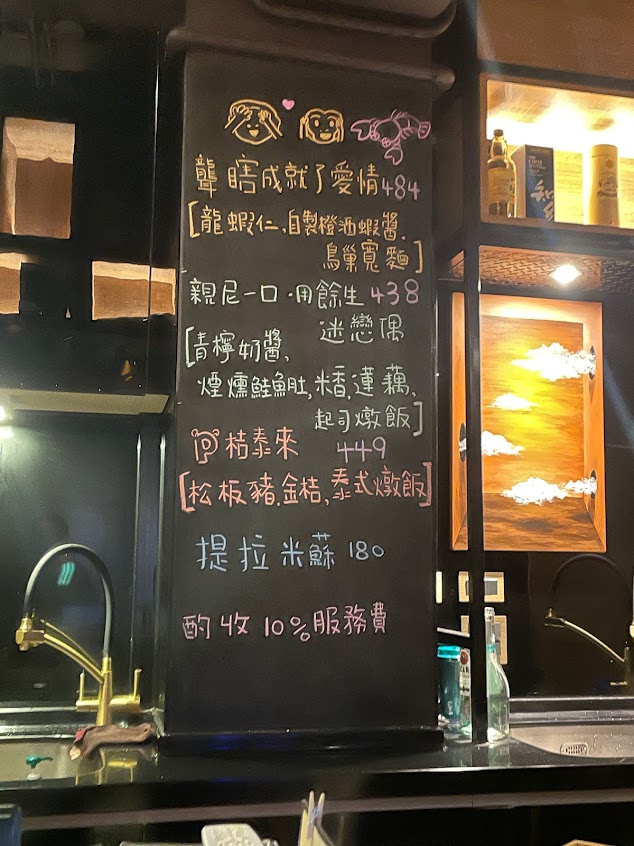 聾瞎成就了愛情484
[龍蝦仁.自製橙酒蝦醬.
鳥巢寬麵]
親尼一口.用餘生438
迷戀偶
[青檸奶醬、
煙燻鮭魚肚、米香、蓮藕、
起司燉飯]
P桔泰來 449
[松板豬.金桔.泰式燉飯]
提拉米蘇 180
酌收10%服務費